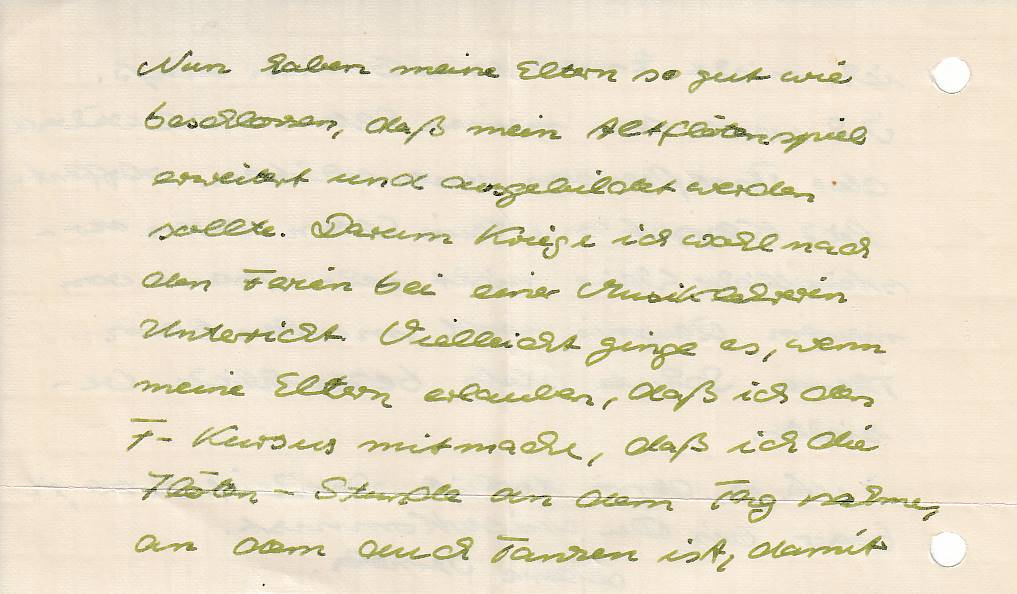 Nun haben meine Eltern so gut wie
beschlossen, daß mein Altflötenspiel
erweitert und ausgebildet werden
sollte. Darum kriege ich wohl nach
den Ferien bei einer Musiklehrerin
Unterricht. Vielleicht ginge es, wenn
meine Eltern erlauben, daß ich den
F-Kursus mitmache, daß ich die
Flöten-Stunde an dem Tag nehme,
an dem auch Tanzen ist, damit